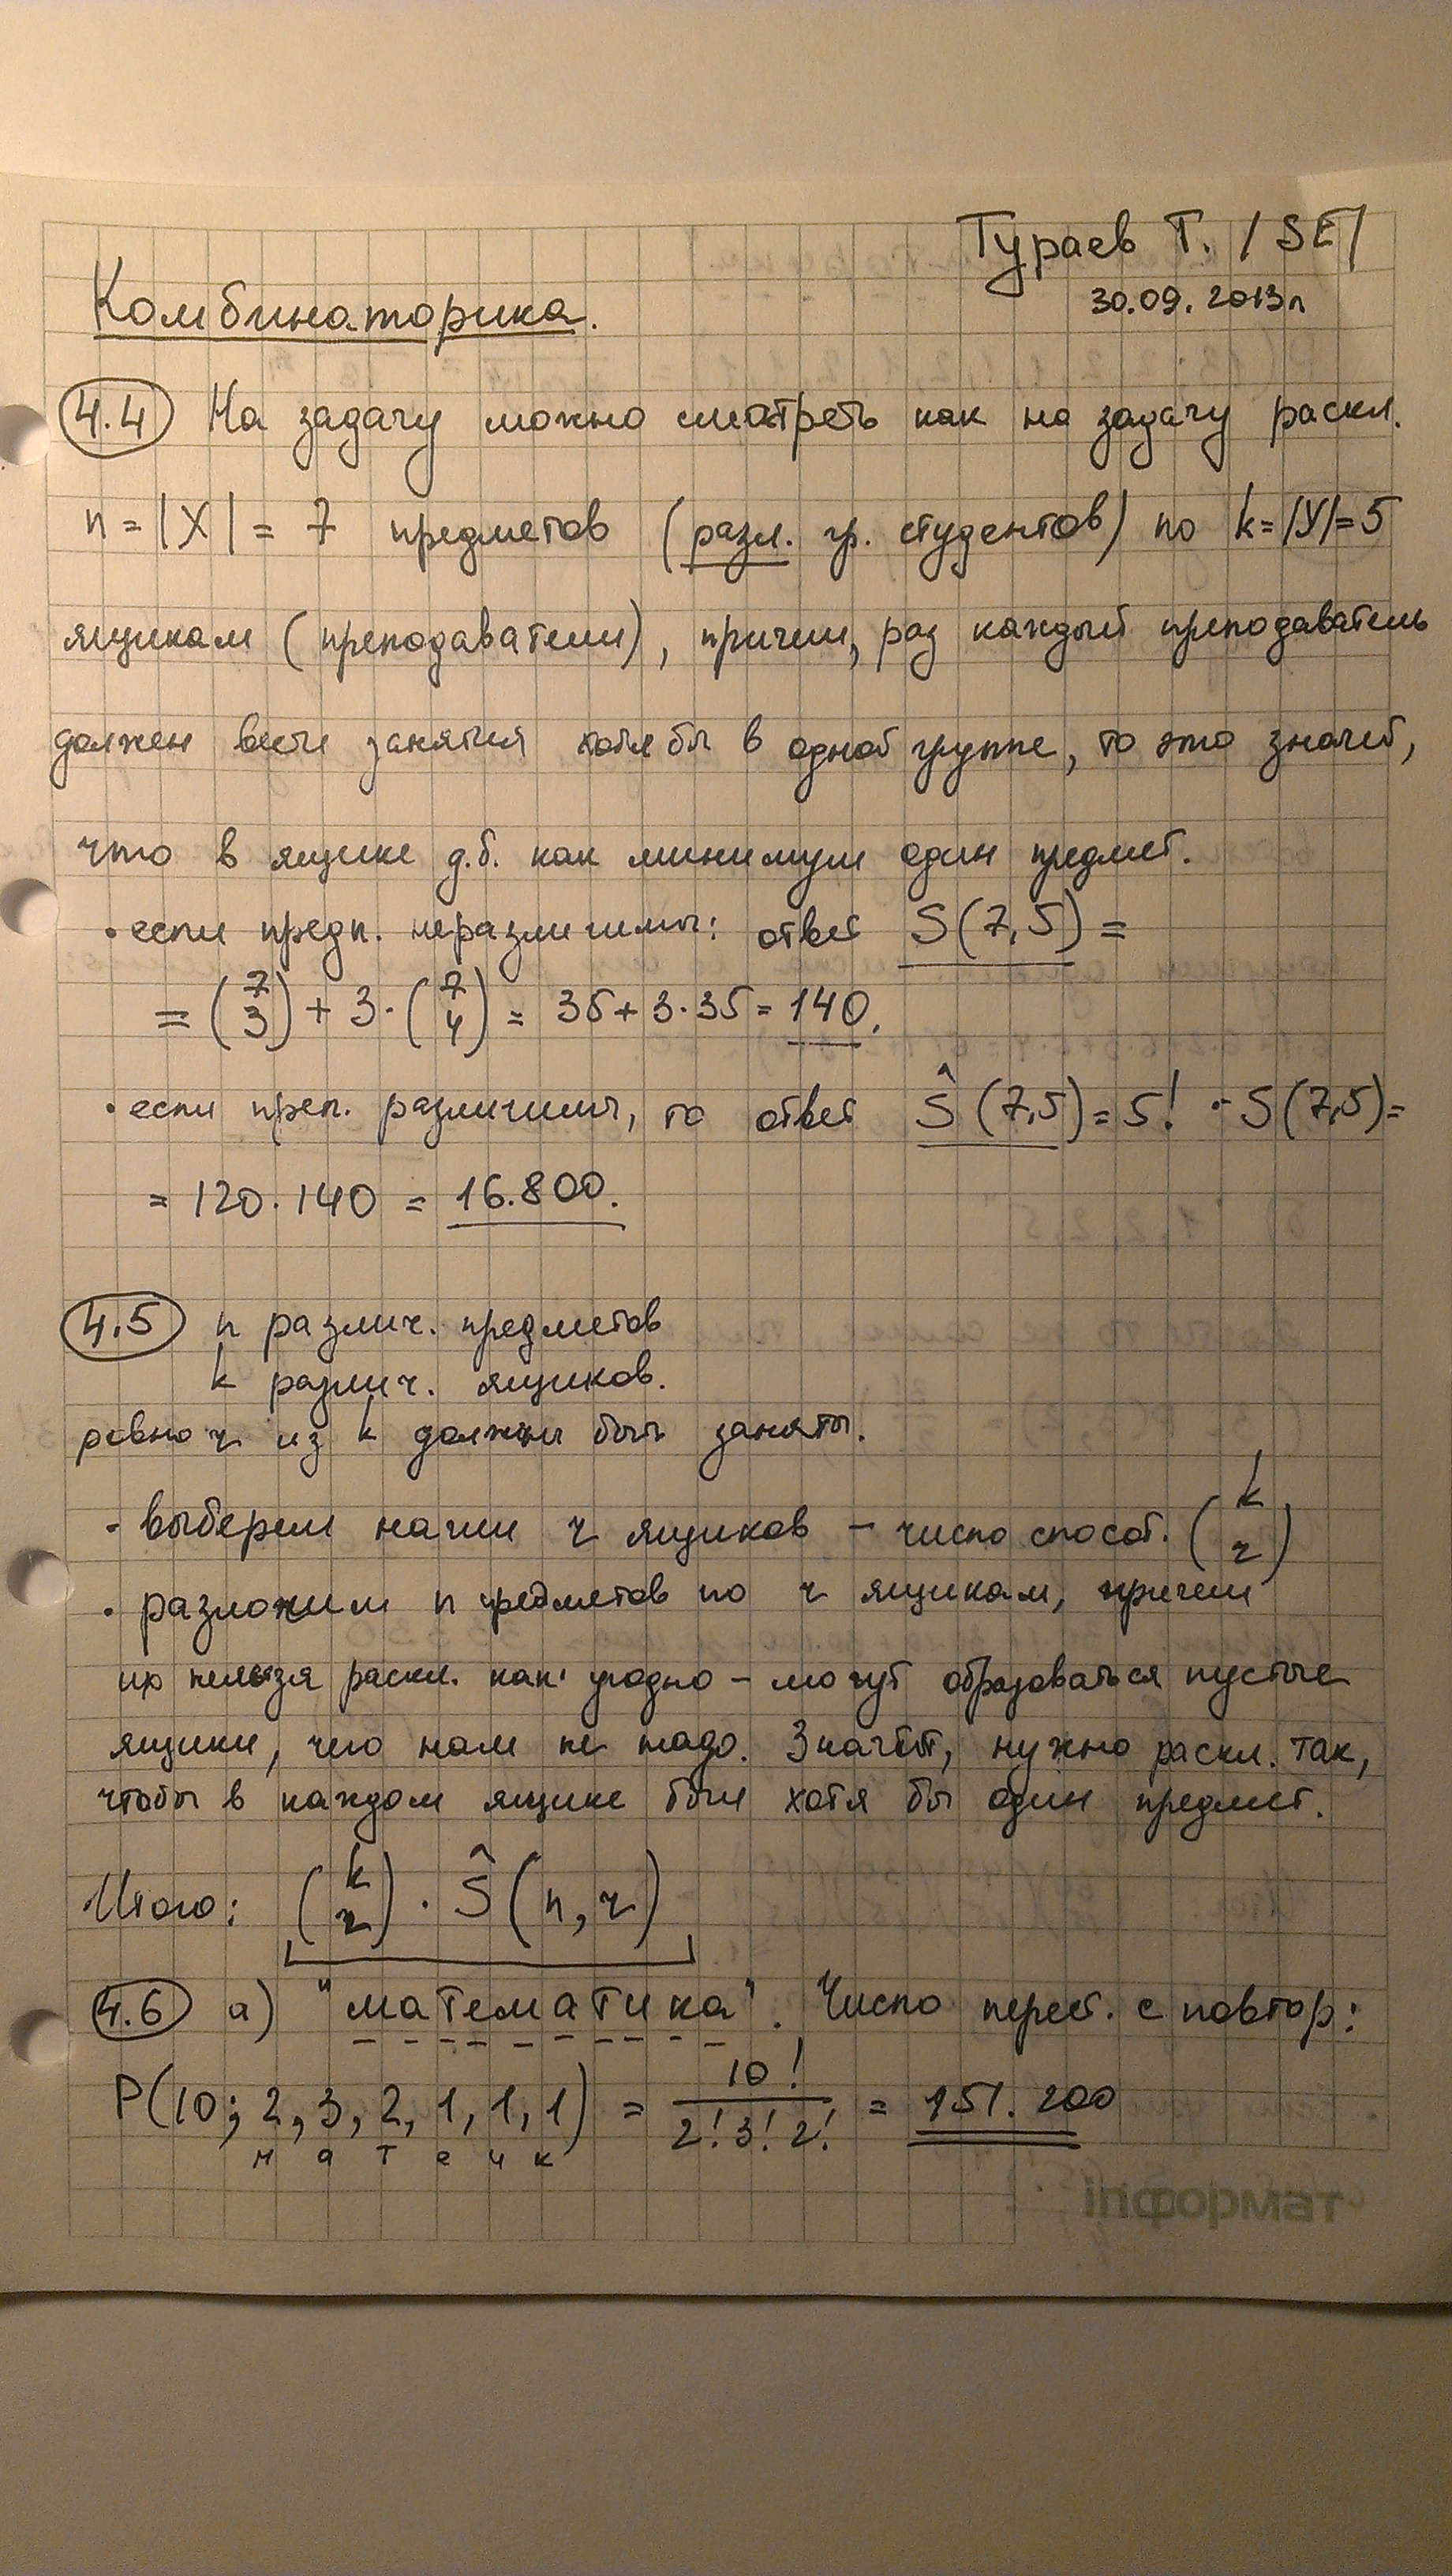 Тураев Т. / SE /
30.09.2013г
Комбинаторика.
4.4 На задачу можно смотреть как на задачу раскл.
n = |X| = 7 предметов (разл. гр. студентов) по k = |Y| = 5
ящикам (преподаватели), причем, раз каждый преподаватель
должен вести занятия хотя бы в одной группе, то это значит,
что в ящике д.б. как минимум один предмет.
• если предп. неразличимы: ответ S(7,5) =
= (7 3) + 3·(7 4) = 35 + 3·35 = 140.
• если преп. различимы, то ответ Ŝ(7,5) = 5! · S(7,5) =
= 120·140 = 16.800.
4.5 n различ. предметов
k различ. ящиков.
ровно r из k должны быть заняты.
• выберем наши r ящиков – число способ. (k r)
• разложим n предметов по r ящикам, причем
их нельзя раскл. как угодно – могут образоваться пустые
ящики, чего нам не надо. Значит, нужно раскл. так,
чтобы в каждом ящике был хотя бы один предмет.
Итого: (k r) · Ŝ(n, r)
4.6 а) "математика". Число перест. с повтор:
P(10; 2, 3, 2, 1, 1, 1) = 10! / 2! 3! 2! = 151.200
м а т е и к
inформат